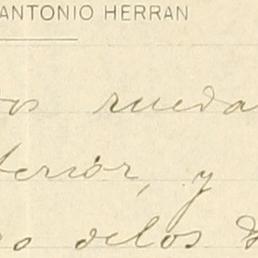 ANTONIO HERRAN
os rueda
terior, y
o delos